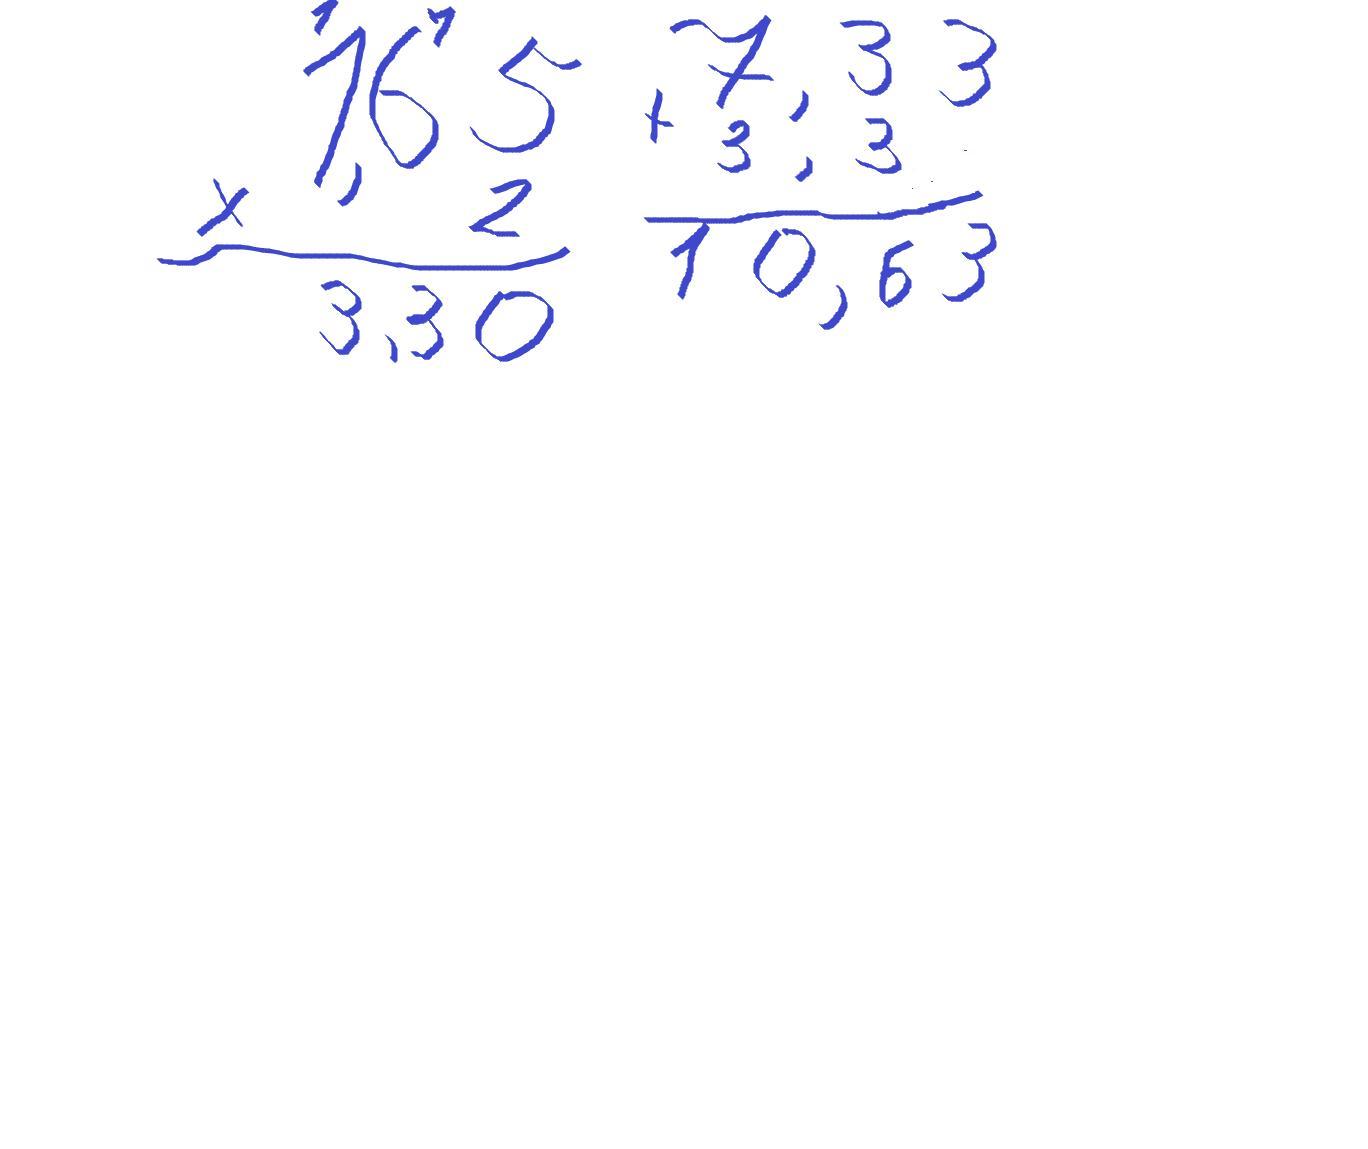 1 1
1,65
x 2
3,30
7,33
+ 3,3
10,63